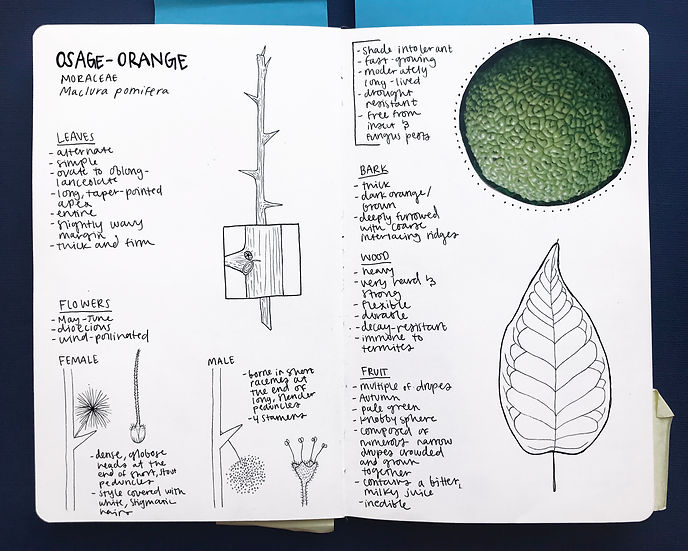 OSAGE-ORANGE
MORACEAE
Maclura pomifera
LEAVES
- alternate
- simple
- ovate to oblong-
lanceolate
- long, taper-pointed
apex
- entire
- slightly wavy
margin
- thick and firm
FLOWERS
- May-June
- dioecious
- wind-pollinated
FEMALE
- dense, globose
heads at the
end of short, stout
peduncles
- style covered with
white, stigmatic
hairs
MALE
- borne in short
racemes at
the end of
long, slender
peduncles
- 4 stamens
- shade intolerant
- fast-growing
- moderately
long-lived
- drought
resistant
- free from
insect &
fungus pests
BARK
- thick
- dark orange/
brown
- deeply furrowed
with coarse
interlacing ridges
WOOD
- heavy
- very hard &
strong
- flexible
- durable
- decay-resistant
- immune to
termites
FRUIT
- multiple of drupes
- Autumn
- pale green
- knobby sphere
- composed of
numerous narrow
drupes crowded
and grown
together
- contains a bitter,
milky juice
- inedible